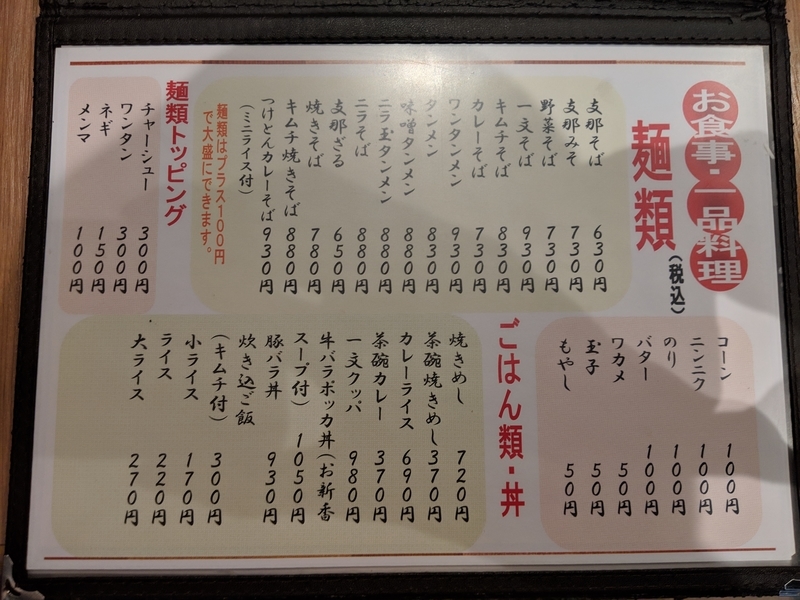 お食事・一品料理
麺類
(税込)
支那そば 630円
支那みそ 730円
野菜そば 730円
一文そば 930円
キムチそば 830円
カレーそば 730円
ワンタンメン 930円
タンメン 830円
味噌タンメン 880円
ニラ玉タンメン 880円
ニラそば 880円
支那ざる 650円
焼きそば 780円
キムチ焼きそば 880円
つけどんカレーそば 930円
(ミニライス付)
麺類はプラス100円
で大盛にできます。
麺類トッピング
チャーシュー 300円
ワンタン 300円
ネギ 150円
メンマ 100円
コーン 100円
ニンニク 100円
のり 100円
バター 100円
ワカメ 50円
玉子 50円
もやし 50円
ごはん類・丼
焼きめし 720円
茶碗焼きめし 370円
カレーライス 690円
茶碗カレー 370円
一文クッパ 980円
牛バラボッカ丼(お新香
スープ付) 1050円
豚バラ丼 930円
炊き込ご飯
(キムチ付) 300円
小ライス 170円
ライス 220円
大ライス 270円